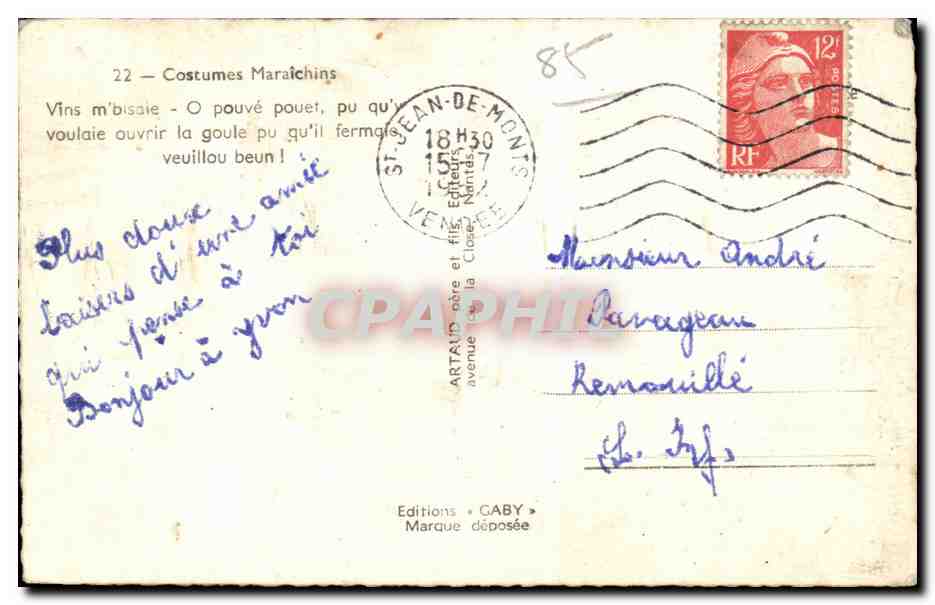 85
22 — Costumes Maraîchins
Vins m'bisaie - O pouvé pouet, pu qu'y
voulaie ouvrir la goule pu qu'il fermaie
veuillou beun !
ST-JEAN-DE-MONTS
18H30
15-7
VENDEE
12F
POSTES
RF
Plus doux
baisers d'une amie
qui pense à toi
Bonjour à yvon
ARTAUD père et fils, Editeurs
avenue de la Close, Nantes
CPAPHIL
Monsieur André
Pavageau
Remouillé
L. Inf.
Editions « GABY »
Marque déposée